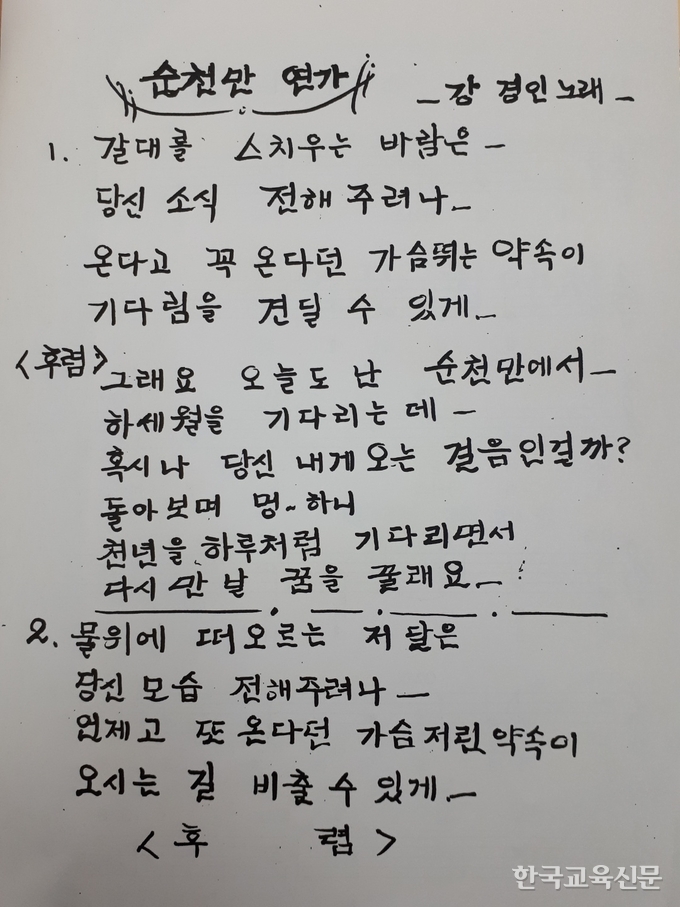 순천만 연가
- 강 경인 노래 -
1. 갈대를 스치우는 바람은 -
당신 소식 전해 주려나 -
온다고 꼭 온다던 가슴뛰는 약속이
기다림을 견딜 수 있게 -
<후렴> 그래요 오늘도 난 순천만에서 -
하세월을 기다리는 데 -
혹시나 당신 내게 오는 걸음인걸까?
돌아보며 멍~하니
천년을 하루처럼 기다리면서
다시 만날 꿈을 꿀래요 -
2. 물위에 떠오르는 저 달은
당신 모습 전해주려나 -
언제고 또 온다던 가슴저린 약속이
오시는 길 비출 수 있게 -
<후 렴>
한국교육신문